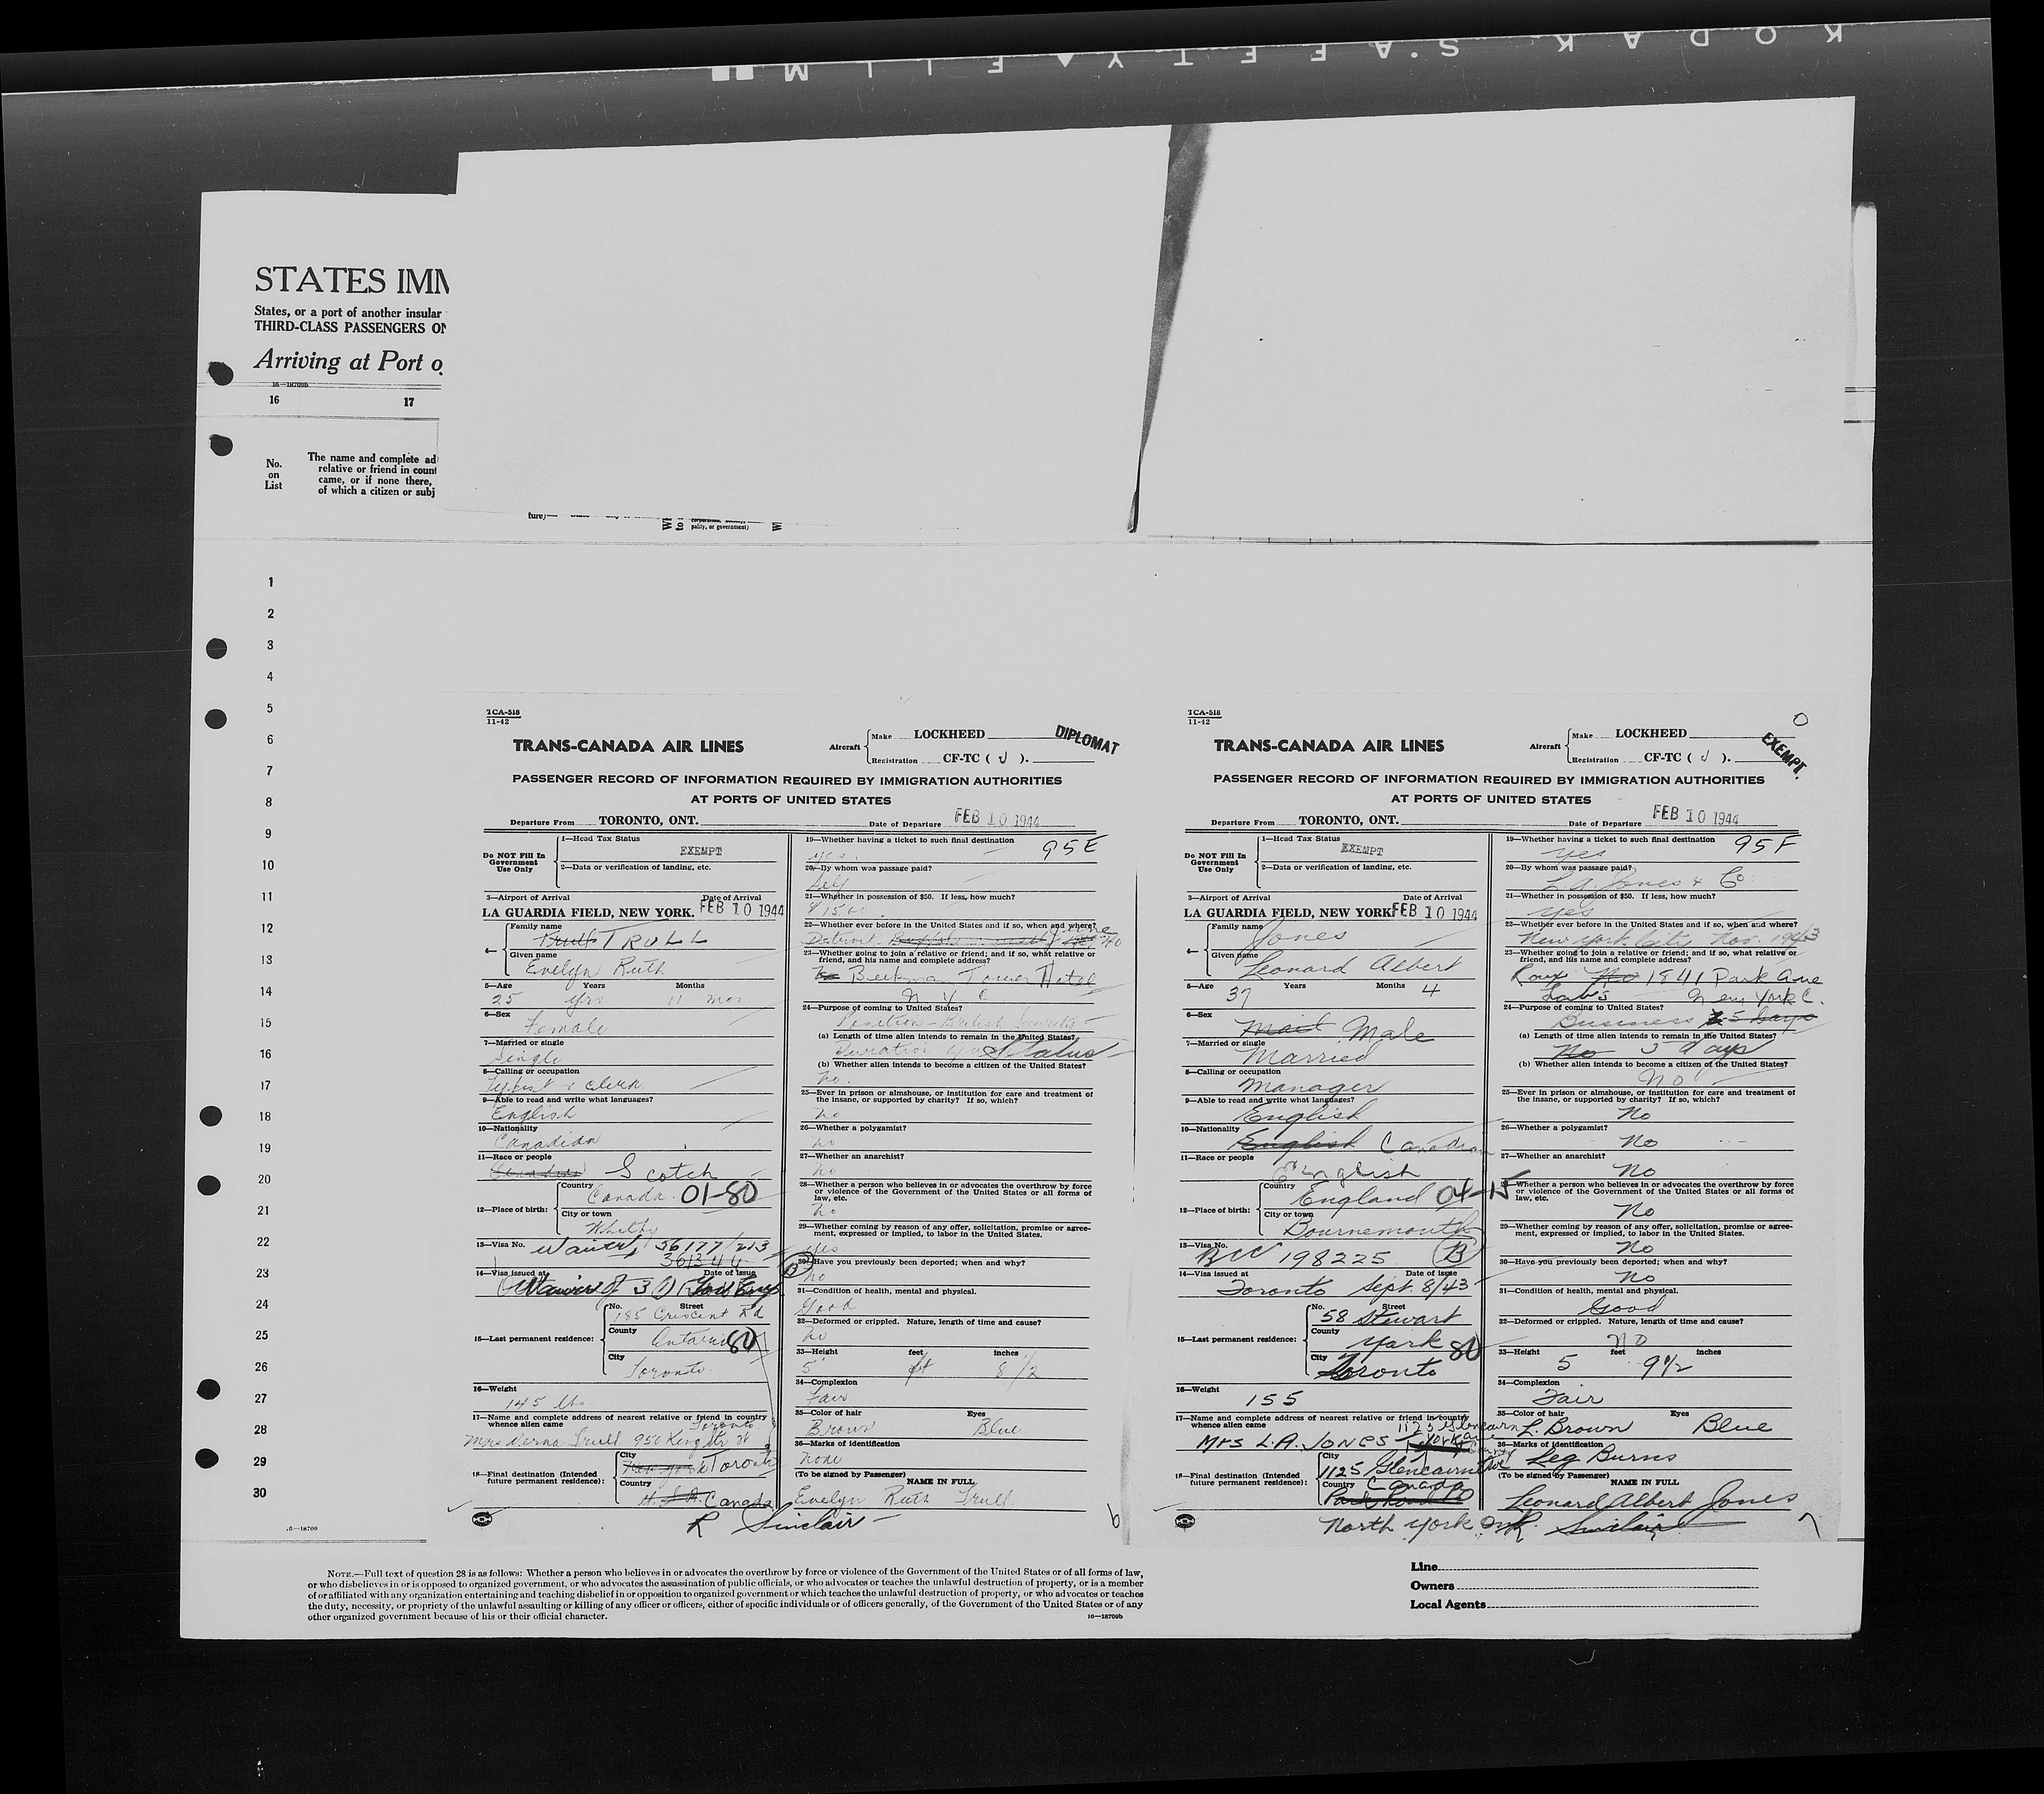 KODAK SAFETY FILM
STATES IMM
States, or a port of another insular
THIRD-CLASS PASSENGERS ON
Arriving at Port o
16—18709b
16 17
No. on List
The name and complete ad
relative or friend in count
came, or if none there,
of which a citizen or subj
ture)—
party, or government)
1
2
3
4
5
6
7
8
9
10
11
12
13
14
15
16
17
18
19
20
21
22
23
24
25
26
27
28
29
30
16—18709
TCA-518
11-42
TRANS-CANADA AIR LINES
Aircraft Make LOCKHEED
Registration CF-TC ( J ).
DIPLOMAT
PASSENGER RECORD OF INFORMATION REQUIRED BY IMMIGRATION AUTHORITIES
AT PORTS OF UNITED STATES
Departure From TORONTO, ONT. Date of Departure FEB 10 1944
Do NOT Fill In Government Use Only
1—Head Tax Status
EXEMPT
2—Data or verification of landing, etc.
3—Airport of Arrival Date of Arrival
LA GUARDIA FIELD, NEW YORK. FEB 10 1944
4— Family name
Trull TRULL
Given name
Evelyn Ruth
5—Age Years Months
25 yrs 11 mos
6—Sex
Female
7—Married or single
Single
8—Calling or occupation
Typist & Clerk
9—Able to read and write what languages?
English
10—Nationality
Canadian
11—Race or people
Canadian Scotch
12—Place of birth: Country
Canada 01-80
City or town
Whitby
13—Visa No.
Waiver 56177/213
361344
14—Visa issued at Date of issue
15—Last permanent residence: No. Street
185 Crescent Rd
County
Ontario 80
City
Toronto
16—Weight
145 lbs
17—Name and complete address of nearest relative or friend in country whence alien came
Toronto
Mrs Verna Trull 950 King Str W
18—Final destination (Intended future permanent residence): City
New York Toronto
Country
U.S.A. Canada
R Sinclair
19—Whether having a ticket to such final destination
yes. 95E
20—By whom was passage paid?
Self
21—Whether in possession of $50. If less, how much?
22—Whether ever before in the United States and if so, when and where?
Detroit June
23—Whether going to join a relative or friend; and if so, what relative or friend, and his name and complete address?
No Beekman Tower Hotel
N Y C
24—Purpose of coming to United States?
Position - British
(a) Length of time alien intends to remain in the United States?
Duration Status
(b) Whether alien intends to become a citizen of the United States?
no.
25—Ever in prison or almshouse, or institution for care and treatment of the insane, or supported by charity? If so, which?
no
26—Whether a polygamist?
no
27—Whether an anarchist?
no
28—Whether a person who believes in or advocates the overthrow by force or violence of the Government of the United States or all forms of law, etc.
no
29—Whether coming by reason of any offer, solicitation, promise or agreement, expressed or implied, to labor in the United States.
yes
30—Have you previously been deported; when and why?
B no
31—Condition of health, mental and physical.
Good
32—Deformed or crippled. Nature, length of time and cause?
no
33—Height feet inches
5' ft 8 1/2
34—Complexion
Fair
35—Color of hair Eyes
Brown Blue
36—Marks of identification
none
(To be signed by Passenger) NAME IN FULL
Evelyn Ruth Trull
6
TCA-518
11-42
0
TRANS-CANADA AIR LINES
Aircraft Make LOCKHEED
Registration CF-TC ( J ).
EXEMPT.
PASSENGER RECORD OF INFORMATION REQUIRED BY IMMIGRATION AUTHORITIES
AT PORTS OF UNITED STATES
Departure From TORONTO, ONT. Date of Departure FEB 10 1944
Do NOT Fill In Government Use Only
1—Head Tax Status
EXEMPT
2—Data or verification of landing, etc.
3—Airport of Arrival Date of Arrival
LA GUARDIA FIELD, NEW YORK. FEB 10 1944
4— Family name
Jones
Given name
Leonard Albert
5—Age Years Months
37 4
6—Sex
Male
7—Married or single
Married
8—Calling or occupation
Manager
9—Able to read and write what languages?
English
10—Nationality
English Canadian
11—Race or people
English
12—Place of birth: Country
England 04-15
City or town
Bournemouth
13—Visa No.
BCC 198225 B
14—Visa issued at Date of issue
Toronto Sept. 8/43
15—Last permanent residence: No. Street
58 Stewart
County
York 80
City
Toronto
16—Weight
155
17—Name and complete address of nearest relative or friend in country whence alien came
1125 Glencairn
Mrs L.A. JONES
18—Final destination (Intended future permanent residence): City
1125 Glencairn Ave
Country
Canada
North York Ont. R Sinclair
19—Whether having a ticket to such final destination
yes 95F
20—By whom was passage paid?
L.A. Jones & Co.
21—Whether in possession of $50. If less, how much?
yes
22—Whether ever before in the United States and if so, when and where?
New York City Nov. 1943
23—Whether going to join a relative or friend; and if so, what relative or friend, and his name and complete address?
Roux No 1841 Park Ave
Labs New York C.
24—Purpose of coming to United States?
Business 5 days
(a) Length of time alien intends to remain in the United States?
No 5 days
(b) Whether alien intends to become a citizen of the United States?
no
25—Ever in prison or almshouse, or institution for care and treatment of the insane, or supported by charity? If so, which?
No
26—Whether a polygamist?
No
27—Whether an anarchist?
No
28—Whether a person who believes in or advocates the overthrow by force or violence of the Government of the United States or all forms of law, etc.
No
29—Whether coming by reason of any offer, solicitation, promise or agreement, expressed or implied, to labor in the United States.
No
30—Have you previously been deported; when and why?
No
31—Condition of health, mental and physical.
Good
32—Deformed or crippled. Nature, length of time and cause?
NO
33—Height feet inches
5 9 1/2
34—Complexion
Fair
35—Color of hair Eyes
L. Brown Blue
36—Marks of identification
Leg Burns
(To be signed by Passenger) NAME IN FULL
Leonard Albert Jones
7
NOTE.—Full text of question 28 is as follows: Whether a person who believes in or advocates the overthrow by force or violence of the Government of the United States or of all forms of law,
or who disbelieves in or is opposed to organized government, or who advocates the assassination of public officials, or who advocates or teaches the unlawful destruction of property, or is a member
of or affiliated with any organization entertaining and teaching disbelief in or opposition to organized government or which teaches the unlawful destruction of property, or who advocates or teaches
the duty, necessity, or propriety of the unlawful assaulting or killing of any officer or officers, either of specific individuals or of officers generally, of the Government of the United States or of any
other organized government because of his or their official character.
16—18709b
Line
Owners
Local Agents